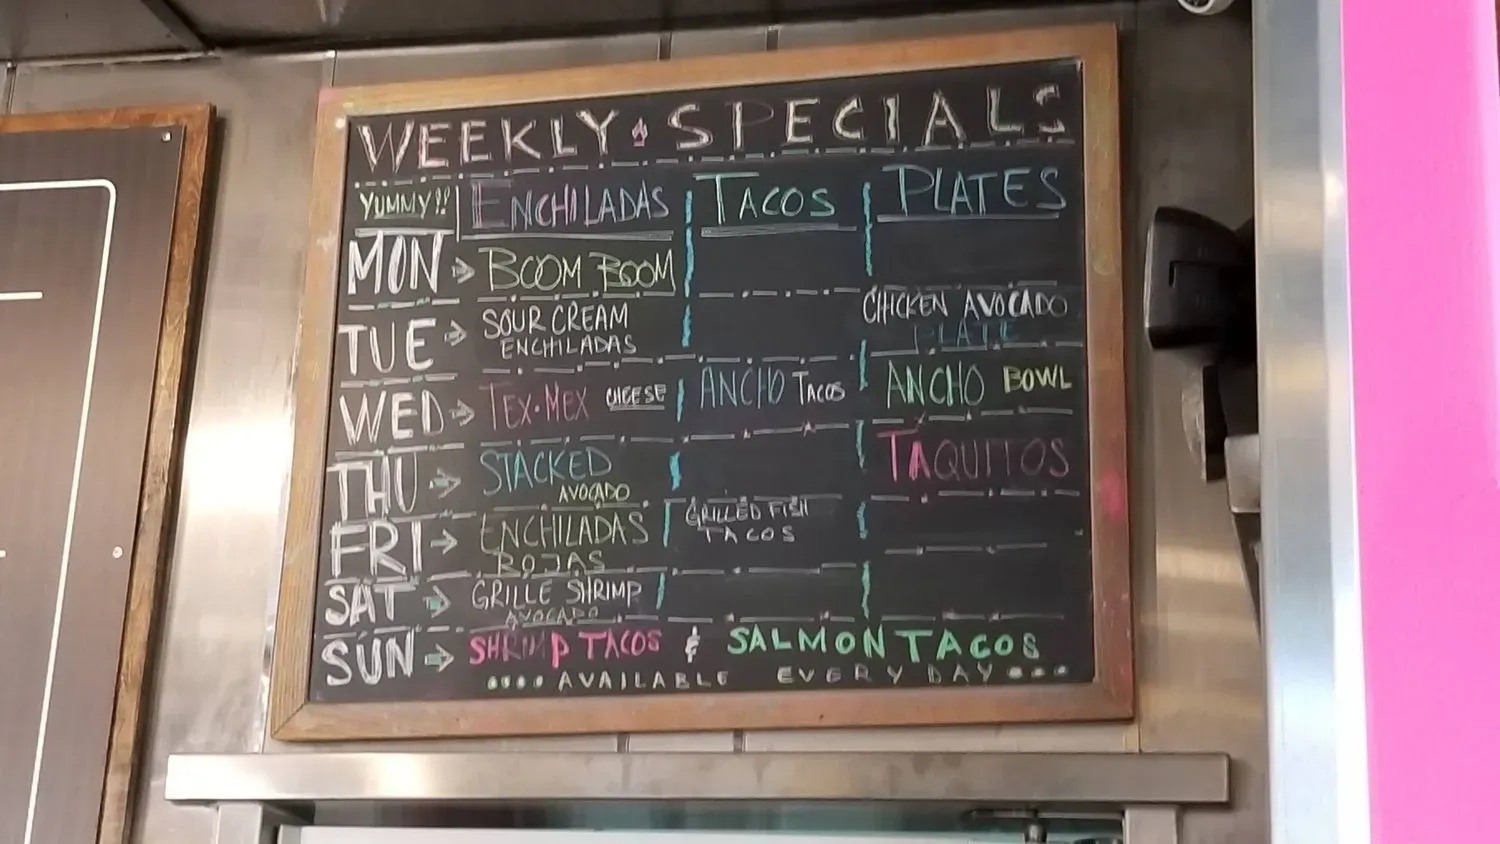 WEEKLY SPECIALS
YUMMY!! ENCHILADAS TACOS PLATES
MON BOOM BOOM
TUE SOUR CREAM ENCHILADAS CHICKEN AVOCADO PLATE
WED TEX-MEX CHEESE ANCHO TACOS ANCHO BOWL
THU STACKED AVOCADO TAQUITOS
FRI ENCHILADAS ROJAS GRILLED FISH TACOS
SAT GRILLE SHRIMP AVOCADO
SUN SHRIMP TACOS & SALMON TACOS
AVAILABLE EVERY DAY